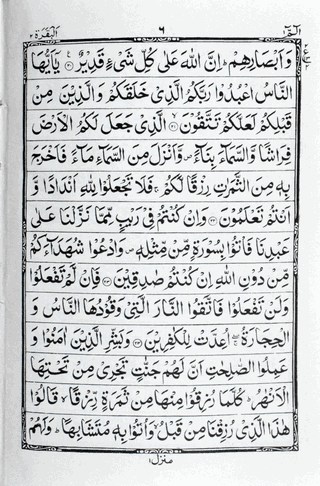 الٓمّٓ ۱ ۶ البقرة ۲
وَاَبْصَارِهِمْ ؕ اِنَّ اللّٰهَ عَلٰى كُلِّ شَیْءٍ قَدِیْرٌ ۟ یٰۤاَیُّهَا
النَّاسُ اعْبُدُوْا رَبَّكُمُ الَّذِیْ خَلَقَكُمْ وَالَّذِیْنَ مِنْ
قَبْلِكُمْ لَعَلَّكُمْ تَتَّقُوْنَ ۟ الَّذِیْ جَعَلَ لَكُمُ الْاَرْضَ
فِرَاشًا وَّالسَّمَآءَ بِنَآءً ۪ وَّاَنْزَلَ مِنَ السَّمَآءِ مَآءً فَاَخْرَجَ
بِهٖ مِنَ الثَّمَرٰتِ رِزْقًا لَّكُمْ ۚ فَلَا تَجْعَلُوْا لِلّٰهِ اَنْدَادًا وَّ
اَنْتُمْ تَعْلَمُوْنَ ۟ وَاِنْ كُنْتُمْ فِیْ رَیْبٍ مِّمَّا نَزَّلْنَا عَلٰى
عَبْدِنَا فَاْتُوْا بِسُوْرَةٍ مِّنْ مِّثْلِهٖ ۪ وَادْعُوْا شُهَدَآءَكُمْ
مِّنْ دُوْنِ اللّٰهِ اِنْ كُنْتُمْ صٰدِقِیْنَ ۟ فَاِنْ لَّمْ تَفْعَلُوْا
وَلَنْ تَفْعَلُوْا فَاتَّقُوا النَّارَ الَّتِیْ وَقُوْدُهَا النَّاسُ وَ
الْحِجَارَةُ ۖۚ اُعِدَّتْ لِلْكٰفِرِیْنَ ۟ وَبَشِّرِ الَّذِیْنَ اٰمَنُوْا وَ
عَمِلُوا الصّٰلِحٰتِ اَنَّ لَهُمْ جَنّٰتٍ تَجْرِیْ مِنْ تَحْتِهَا
الْاَنْهٰرُ ؕ كُلَّمَا رُزِقُوْا مِنْهَا مِنْ ثَمَرَةٍ رِّزْقًا ۙ قَالُوْا
هٰذَا الَّذِیْ رُزِقْنَا مِنْ قَبْلُ ۙ وَاُتُوْا بِهٖ مُتَشَابِهًا ؕ وَلَهُمْ
منزل ۱